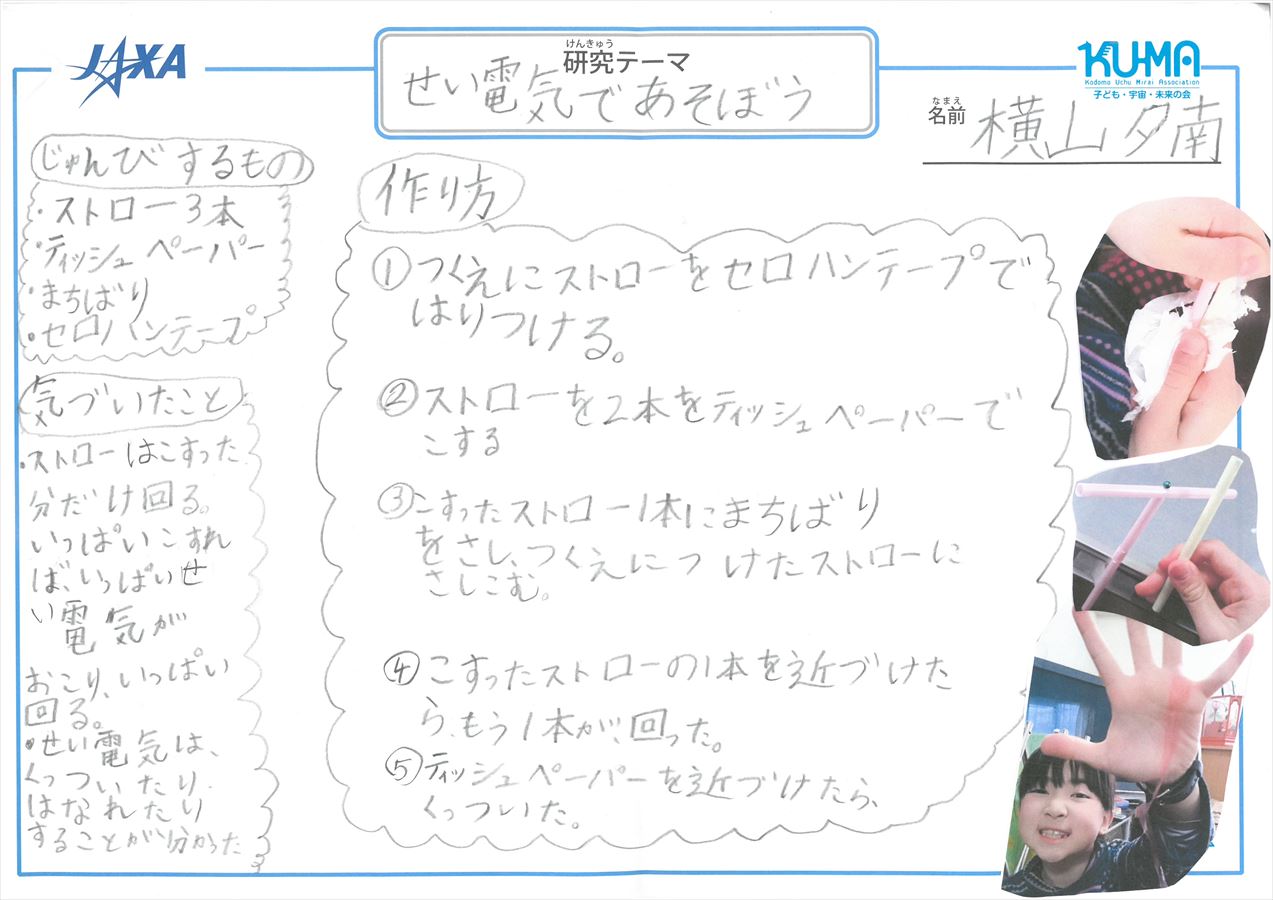 JAXA
けんきゅう
研究テーマ
せい電気であそぼう
KUMA
Kodomo Uchu Mirai Association
子ども・宇宙・未来の会
なまえ
名前
横山夕南
じゅんびするもの
・ストロー3本
・ティッシュペーパー
・まちばり
・セロハンテープ
気づいたこと
・ストローはこすった
分だけ回る。
いっぱいこすれ
ば、いっぱいせ
い電気が
おこり、いっぱい
回る。
・せい電気は、
くっついたり
はなれたり
することが分かった
作り方
①つくえにストローをセロハンテープで
はりつける。
②ストローを2本をティッシュペーパーで
こする
③こすったストロー1本にまちばり
をさし、つくえにつけたストローに
さしこむ。
④こすったストローの1本を近づけた
ら、もう1本が、回った。
⑤ティッシュペーパーを近づけたら、
くっついた。